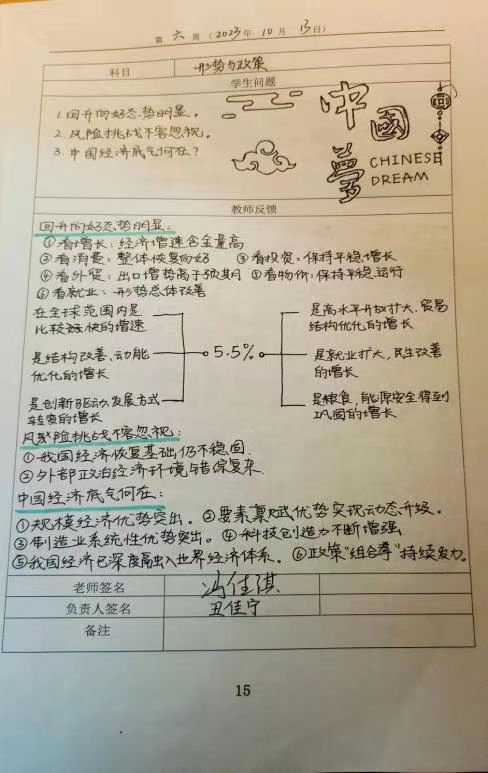 第 六 周 (2023年 10月 13日)
科目 形势与政策
学生问题
1.回升向好态势明显。
2.风险挑战不容忽视。
3.中国经济底气何在?
中國夢
CHINESE
DREAM
教师反馈
回升向好态势明显:
①看增长:经济增速含金量高
②看消费:整体恢复向好 ③看投资:保持平稳增长
④看外贸:出口增势高于预期 ⑤看物价:保持平稳运行
⑥看就业:形势总体改善
在全球范围内是
比较好快的增速
是结构改善、动能
优化的增长
是创新驱动,发展方式
转变的增长
5.5%
是高水平开放扩大,贸易
结构优化的增长
是就业扩大,民生改善
的增长
是粮食,能源安全得到
巩固的增长
风险挑战不容忽视:
①我国经济恢复基础仍不稳固.
②外部政治经济环境错综复杂.
中国经济底气何在:
①规模经济优势突出。②要素禀赋优势实现动态升级。
③制造业系统性优势突出。④科技创造力不断增强
⑤我国经济已深度融入世界经济体系。⑥政策“组合拳”持续发力。
老师签名 冯佳淇
负责人签名 丑佳宁
备注
15